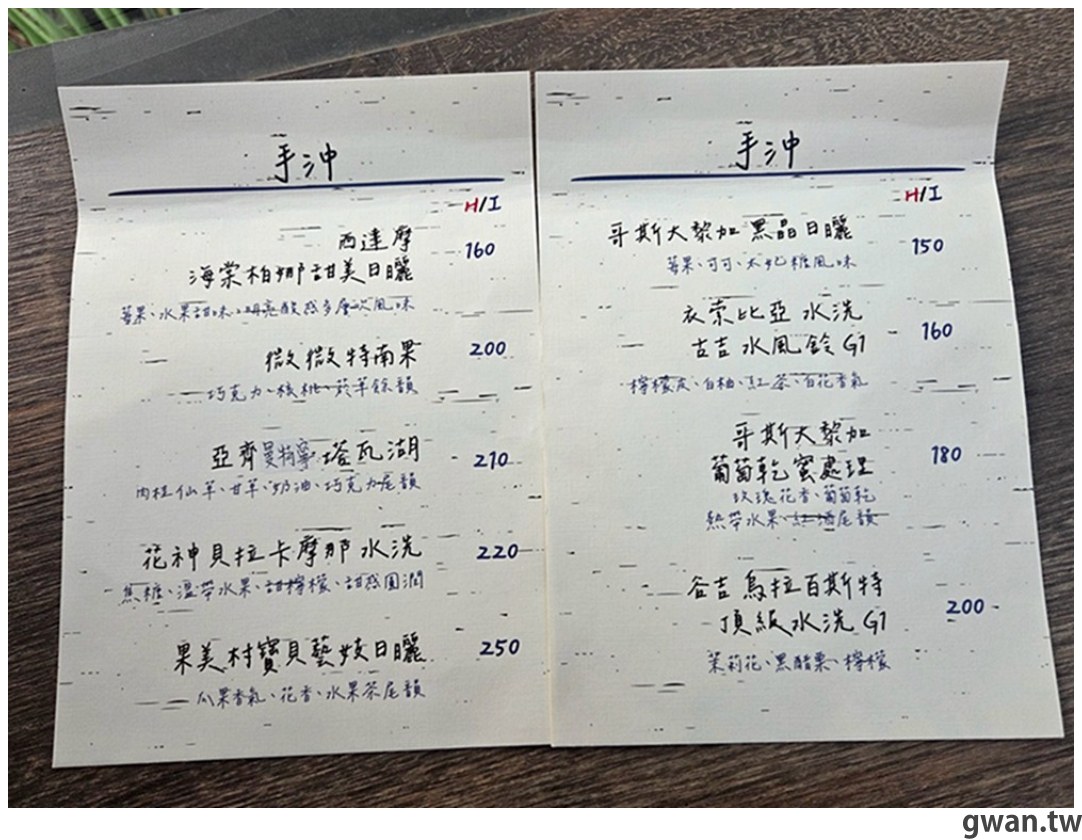 手沖
H/I
西達摩
海棠柏娜甜美日曬 160
莓果、水果甜味、明亮酸感多層次風味
微微特南果 200
巧克力、核桃、菸草餘韻
亞齊曼特寧 塔瓦湖 210
肉桂仙草、甘草、奶油、巧克力尾韻
花神貝拉卡摩那 水洗 220
焦糖、溫帶水果、甜檸檬、甜感圓潤
果美村寶貝藝妓日曬 250
瓜果香氣、花香、水果茶尾韻
手沖
H/I
哥斯大黎加 黑晶日曬 150
莓果、可可、太妃糖風味
衣索比亞 水洗
古吉 水風鈴 G1 160
檸檬皮、白柚、紅茶、百花香氣
哥斯大黎加
葡萄乾蜜處理 180
玫瑰花香、葡萄乾
熱帶水果、紅酒尾韻
谷吉 烏拉百斯特
頂級水洗 G1 200
茉莉花、黑醋栗、檸檬
gwan.tw